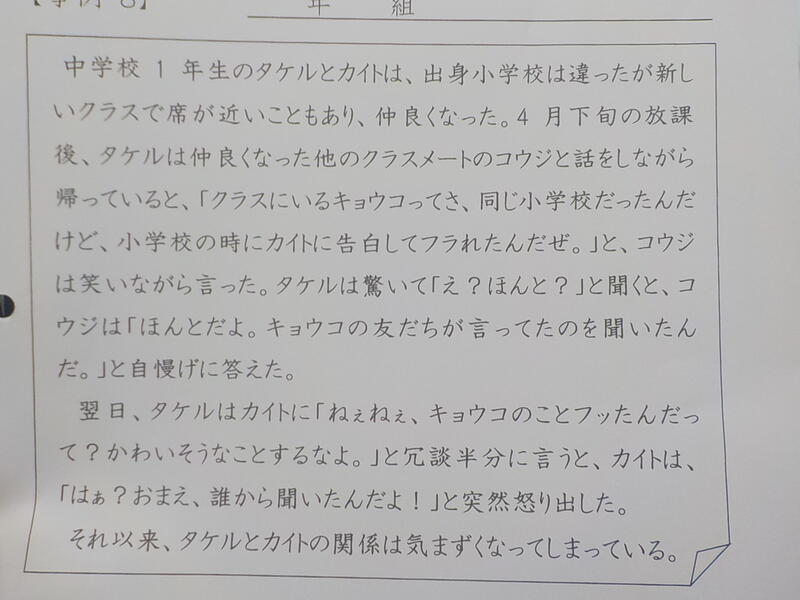 【事例8】
年 組
中学校1年生のタケルとカイトは、出身小学校は違ったが新し
いクラスで席が近いこともあり、仲良くなった。4月下旬の放課
後、タケルは仲良くなった他のクラスメートのコウジと話をしながら
帰っていると、「クラスにいるキョウコってさ、同じ小学校だったんだ
けど、小学校の時にカイトに告白してフラれたんだぜ。」と、コウジ
は笑いながら言った。タケルは驚いて「え?ほんと?」と聞くと、コ
ウジは「ほんとだよ。キョウコの友だちが言ってたのを聞いたん
だ。」と自慢げに答えた。
翌日、タケルはカイトに「ねぇねぇ、キョウコのことフッたんだっ
て?かわいそうなことするなよ。」と冗談半分に言うと、カイトは、
「はぁ?おまえ、誰から聞いたんだよ!」と突然怒り出した。
それ以来、タケルとカイトの関係は気まずくなってしまっている。